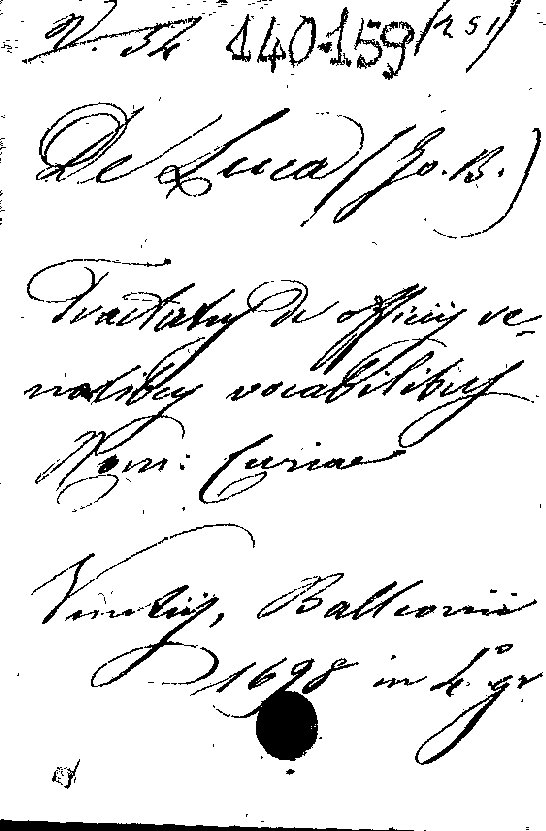 N. 34 140159 (251)
De Luca (Jo. B.)
Tractatus De officiis ve-
nalibus vocabilibus
Rom: Curiae
Venetiis, Balleonii
1698 in 4.o gr